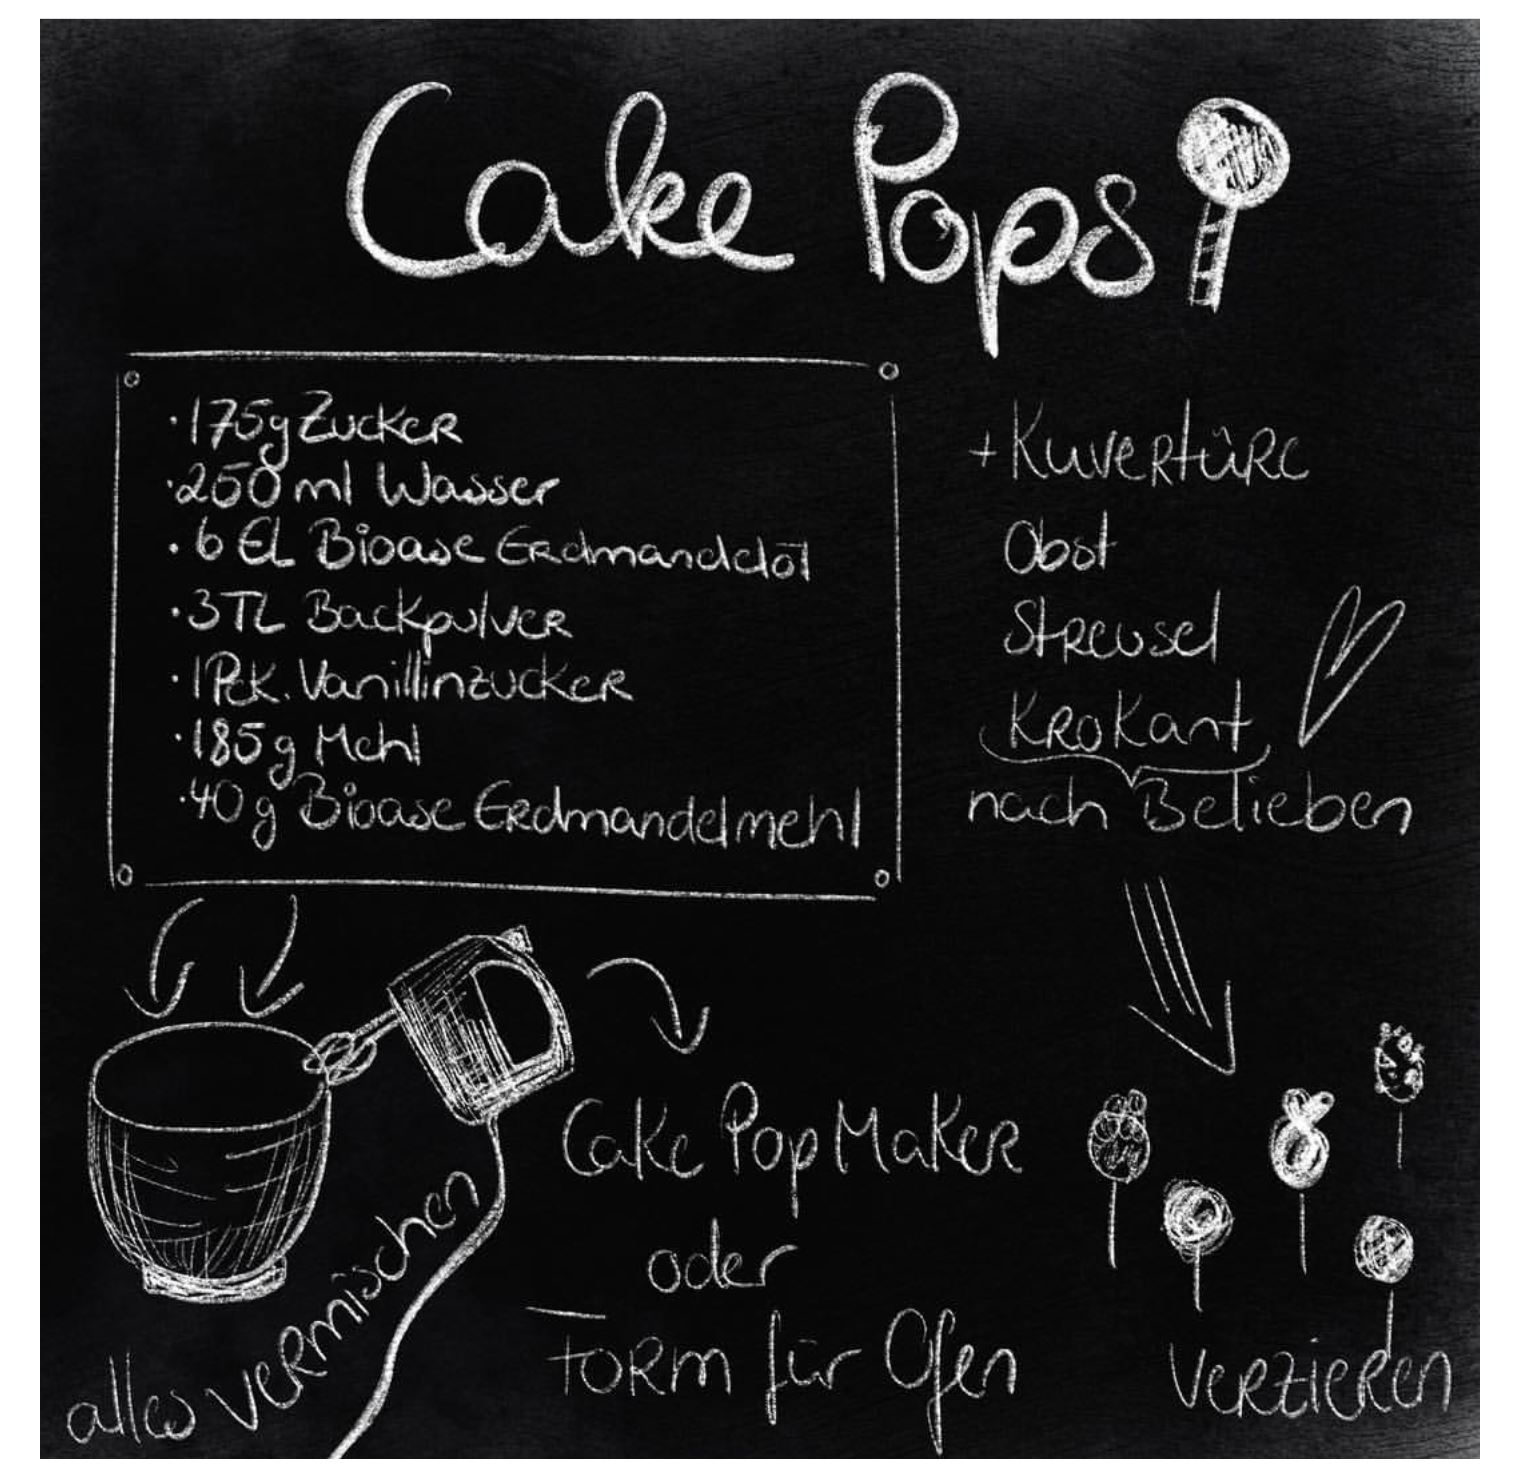 Cake Pops
· 175g Zucker
· 250 ml Wasser
· 6 EL Bioase Erdmandelöl
· 3 TL Backpulver
· 1 Pck. Vanillinzucker
· 185 g Mehl
· 40 g Bioase Erdmandelmehl
+ Kuvertüre
Obst
Streusel
Krokant
nach Belieben
alles vermischen
Cake Pop Maker
oder
Form für Ofen
verzieren